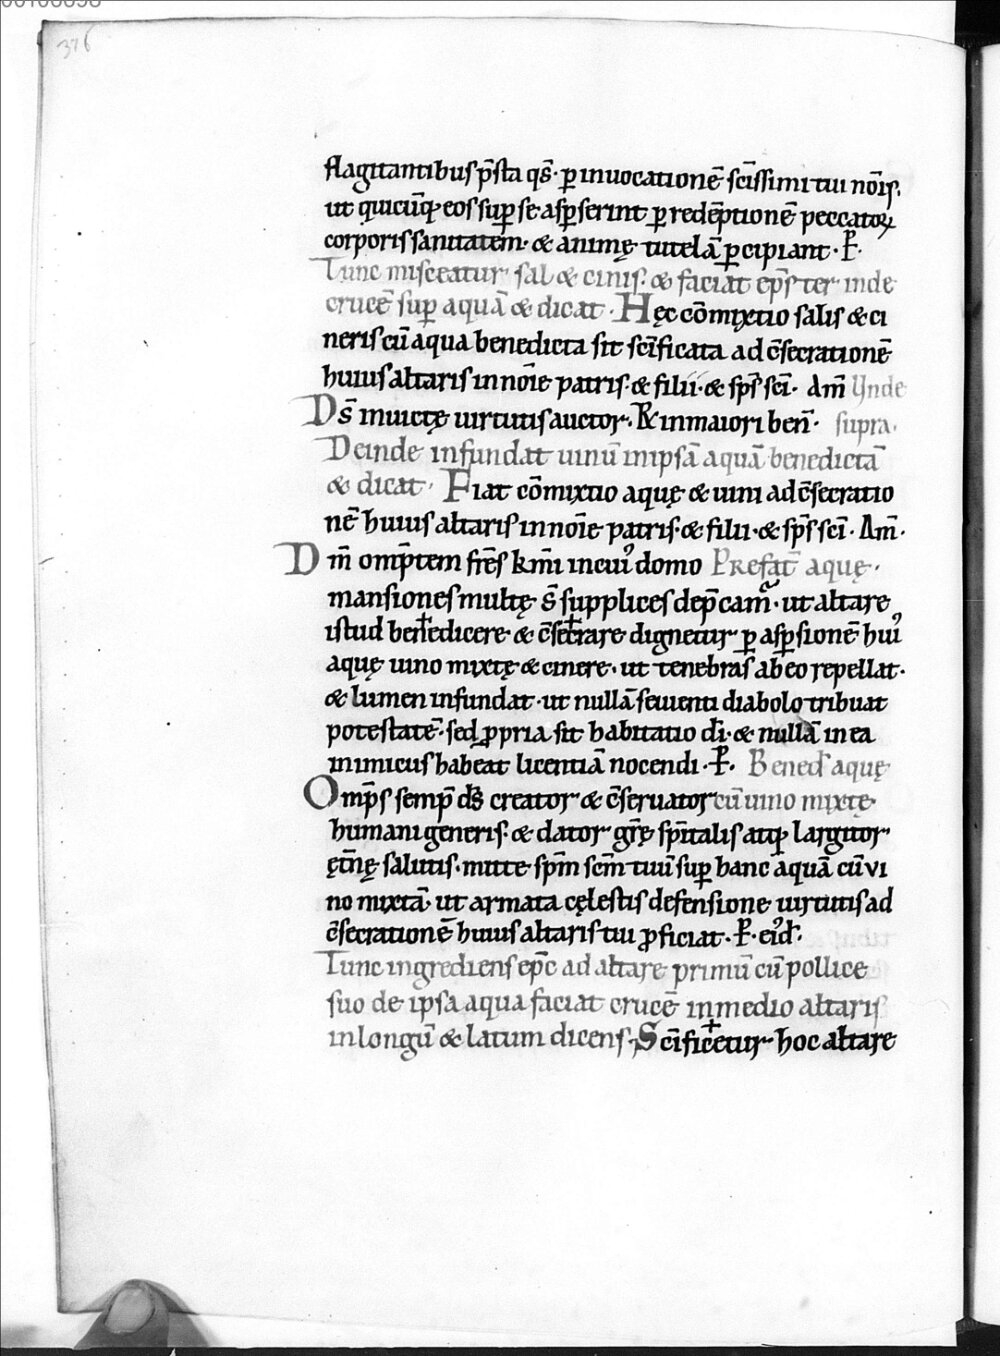 376
flagitantibus p̄sta qs̄. ꝑ inuocationē sc̄issimi tui nōis,
ut quicūq; eos suꝑ se asꝑserint ꝑ redēptionē peccatoꝝ
corporis sanitatem. & animę tutelā ꝑcipiant. P̄.
Tunc misceatur sal & cinis. & faciat ep̄s ter inde
crucē suꝑ aquā & dicat. Hęc cōmixtio salis & ci
neris cū aqua benedicta sit sc̄ificata ad c̄secrationē
huius altaris in nōie patris. & filii. & sp̄s sc̄i. Am̄ Unde
Ds̄ inuictę uirtutis auctor. R̄ in maiori ben̄. supra.
Deinde infundat uinū in ipsā aquā benedictā
& dicat. Fiat cōmixtio aquę & uini ad c̄secratio
nē huius altaris in nōie patris. & filii. & sp̄s sc̄i. Am̄.
Dm̄ omp̄tem fr̄es km̄i in cuiꝰ domo Prefat̄ aquę.
mansiones multę s̄ supplices dep̄cam̄. ut altare
istud bene†dicere & c̄se†crare dignetur ꝑ asꝑsionē huiꝰ
aquę uino mixtę & cinere. ut tenebras ab eo repellat.
& lumen infundat. ut nullā seuienti diabolo tribuat
potestatē. sed ꝓpria sit habitatio di̅. & nullā in ea
inimicus habeat licentiā nocendi. P̄. Bened̄ aquę
Omp̄s semp̄ ds̄ creator & c̄seruator cū uino mixtę
humani generis. & dator gr̄ę sp̄italis atq; largitor
ęt̄nę salutis. mitte sp̄m sc̄m tuū suꝑ hanc aquā cū vi
no mixtā. ut armata cęlestis defensione uirtutis ad
c̄secrationē huius altaris tui ꝓficiat. P̄. eiꝰd̄.
Tunc ingrediens ep̄c ad altare primū cū pollice
suo de ipsa aqua faciat crucē in medio altaris
in longū & latum dicens. Sc̄ific†etur hoc altare